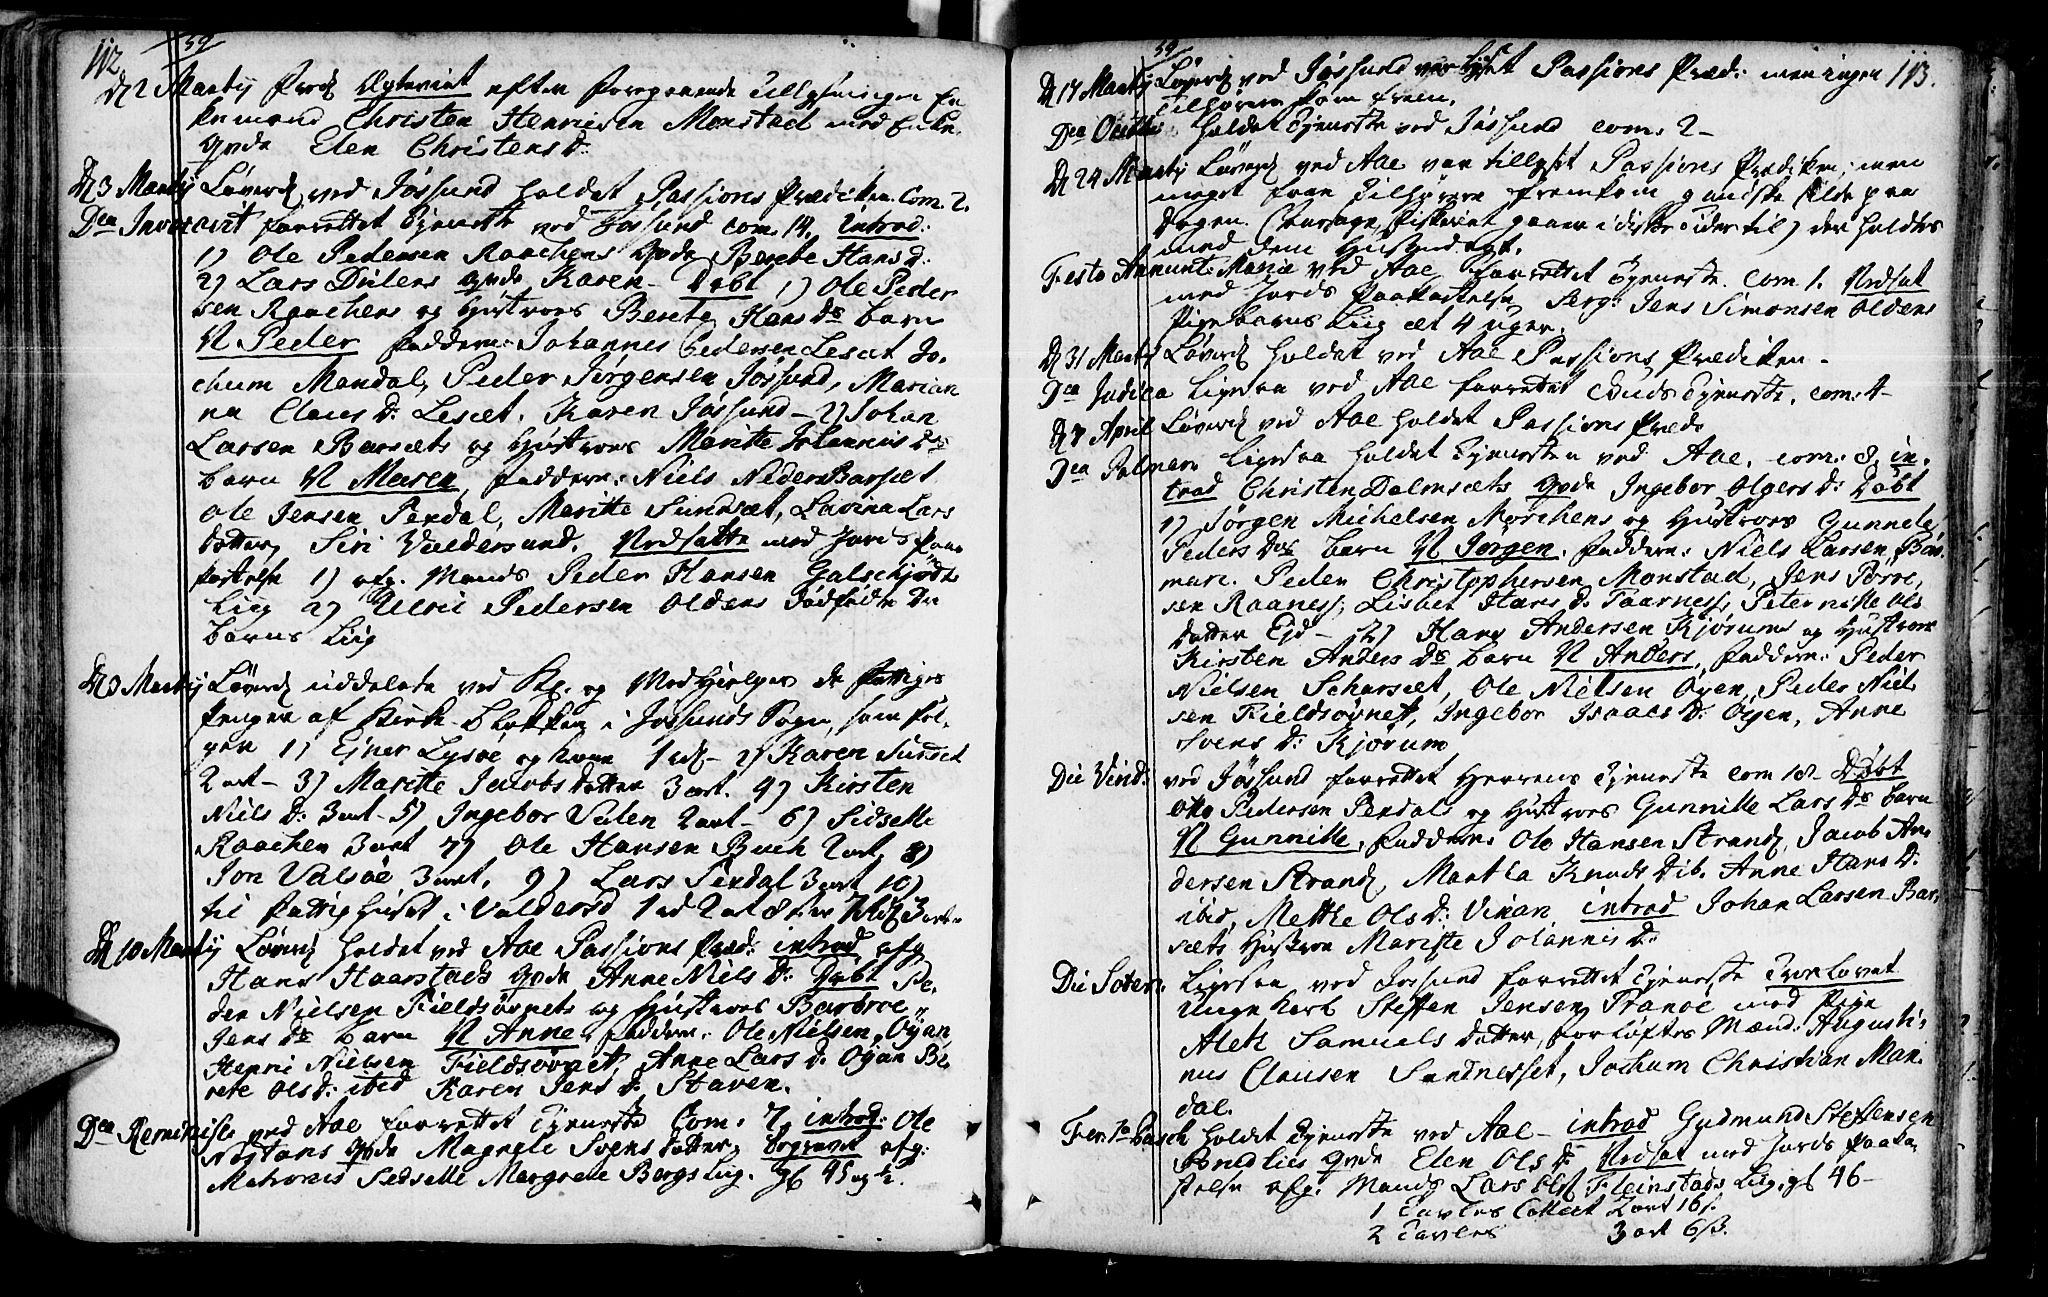 112
59
D 2 Martij Fred Ægteviet efter foregaaende Tillysninger En
kemand Christen Henrichsen Monstad med Enke
qvde Elen Christens D:
D 3 Martij Løverd ved Jøssund holdet Passions Prædiken. Com. 2.
Dca Invocavit forrettet Tjeneste ved Jossund com. 14. introd:
1) Ole Pedersen Raachens qvde Berete Hans D:
2) Lars Dulens qvde Karen - Døbt 1) Ole Peder
sen Raachens og Hustroes Berete Hans Ds barn
N Peder Faddere: Johannes Pedersen Lesæt Jo-
chum Mandal, Peder Jørgensen Jøssund, Marian
na Claus D: Lesæt. Karen Jøssund - 2) Johan
Larsen Barsæts og Hustroes Maritte Johannis Ds
barn N Maren Faddere: Niels NederBarsæt
Ole Jensen Terdal, Maritte Sundsæt, Lavina Lars
datter, Siri Valdersund. Nedsatte med Jords Paa
kastelse 1) afg. Mands Peder Hansen Galschjødts
Liig 2) Ulric Pedersen Oldens dødfødte
barns Liig
D 9 Martij Løverd uddelete ved og Medhielper de fattiges
Penger af Kirke-blokken i Jossunds Sogn, som føl-
ger 1) Ejner Lysøe og kone 1 rd - 2) Karen Sundset
2 ort - 3) Maritte Jacobs datter 3 ort. 4) Kirsten
Niels D: 3 ort - 5) Ingebor Veden 2 ort - 6) Sidselle
Raachen 3 ort 7) Ole Hansen Buch 2 ort 8)
Jon Valsøe 3 ort. 9) Lars Terdal 3 ort 10)
til Fattighuset i Valdersd 1 rd 2 ort
D 10 Martij Løverd holdet ved Aae Passions Præd: introd afg
Hans Haarstads qvde Anne Niels D: Døbt Pe-
der Nielsen Fieldsøvnets og Hustroes Barbroe
Jens Ds barn N Anne, Faddere: Ole Nielsen Øyan,
Henric Nielsen Fieldsøvnet, Anne Lars D. Oyan Be
rete Ols D: ibid Karen Jens D. Staven.
Dca Reminisc ved Aae forrettet Tjeneste Com. 7. introd: Ole
Nøstans qvde Magnele Svens datter, begravet afg:
Matronis Sedselle Margrete Bergs Liig. gl 45 og ½.
59
113.
D 17 Martij Løverd ved Jøssund var lyst Passions Præd: men ingen
Tilhørere kom frem.
Dca Oculi holdet Tjeneste ved Jossund com. 2 -
D 24 Martij Løverd ved Aae var tillyst Passions Prædiken, men
noget faae Tilhørere fremkom gandske silde paa
Dagen. (Aarsage, fiskeriet gaaer i diske Tider til) der holdtes
med dem Husandagt.
Festo Annunt: Mariæ ved Aae forrettet Tjeneste. com 1. Nedsat
med Jords Paakastelse Serg: Jens Simonsen Oldens
Pigebarns Liig æt 4 uger.
D 31 Martij Løverd holdet ved Aae Passions Prædiken -
Dca Judica Ligesaa ved Aae forrettet Guds Tjeneste. com: 4 -
D 7 April Løverd ved Aae holdet Passions Præd.
Dca Palmar: Ligesaa holdet Tjenesten ved Aae. com: 8. in-
trod Christen Dalmsæts qvde Ingebor Olgers D: Døbt
1) Jørgen Michelsen Morchens og Hustroes Gunnele
Peders Ds barn N Jørgen. Faddere: Niels Larsen,
mari. Peder Christophersen Monstad, Jens
sen Raaness, Lisbet Hans D. Paarness, Peternille Ols
datter Eid - 2) Hans Andersen Kjørums og Hustroes
Kirsten Anders Ds barn N Anders, Faddere: Peder
Nielsen Scharsæt, Ole Nielsen Øyen, Peder Niel
sen Fieldsøvnet, Ingebor Isaacs D: Øyen, Anne
Svens D: Kjørum
Die Virid: ved Jøssund forrettet Herrens Tjeneste com 18 - Døbt
Ole Pedersen Perdals og Hustroes Gunnille Lars Ds barn
N Gunnille, Faddere: Ole Hansen Strand, Jacob An-
dersen Strand, Martha Knuds D ib. Anne Hans D:
ibid, Mette Ols D: Vinan introd Johan Larsen Bar-
sæts Hustroe Maritte Johannis D:
Die Sater: Ligesaa ved Jossund forrettet Tjeneste Troelovet
Unge Karl Steffen Jensen Tranøe med Pige
Aleth Samuels datter, forlofters Mænd: Augusti-
nus Clausen Sandnesset, Jochum Christian Man
dal.
Fer: 1a Pasch holdet Tjeneste ved Aae - introd Gudmund Steffensen
qvde Elen Ols D: Nedsat med Jords Paaka-
stelse afg. Mands Lars Ols Fleinstads Liig, gl 46 -
1 Tavles Collect 2 ort 16 s.
2 Tavles 3 ort 6 s.